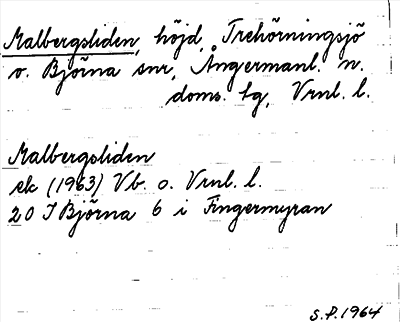 Malbergsliden, höjd, Trehörningsjö
o. Björna snr, Ångermanl. n.
doms. hg, Vrnl. l.
Malbergsliden
ek (1963) Vb. o. Vrnl. l.
20 J Björna 6 i Fingermyran
S.P. 1964